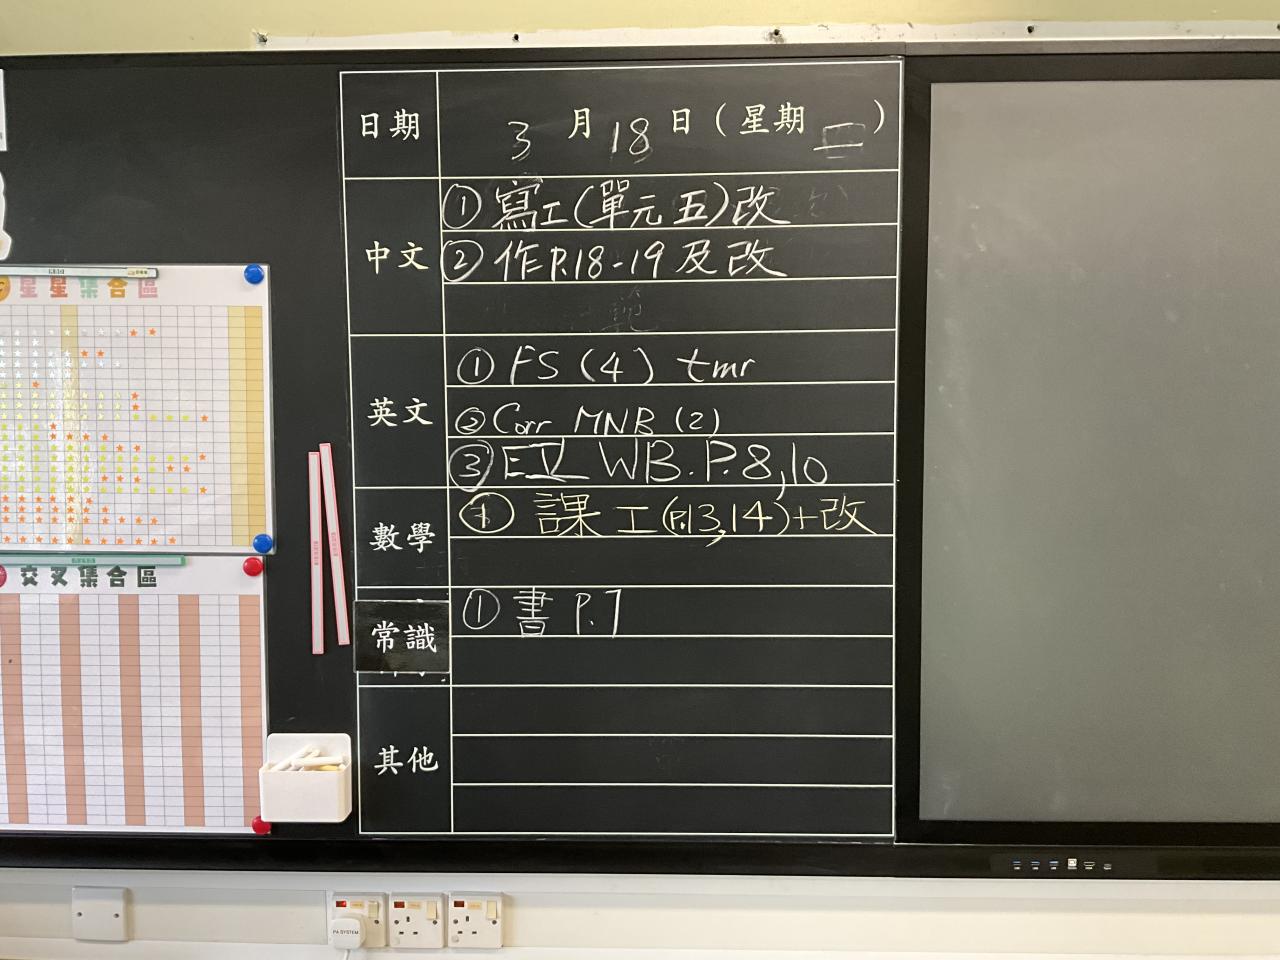 日期 3月18日(星期二)
中文
①寫工(單元五)改
②作P.18-19及改
英文
① FS (4) tmr
② Corr MNB (2)
③ WB. P.8,10
數學
課工(P.13,14)+改
常識
① 書 P.7
其他
星星集合區
交叉集合區
PA SYSTEM